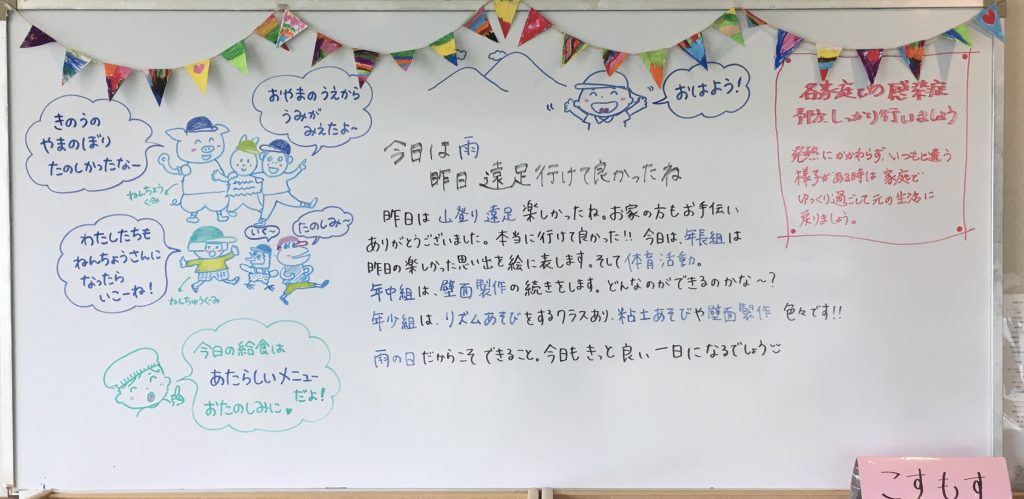 きのうの
やまのぼり
たのしかったなー
おやまのうえから
うみが
みえたよ〜
ねんちょう
ぐみ
わたしたちも
ねんちょうさんに
なったら
いこーね!
いく〜
たのしみ〜
ねんちゅうぐみ
今日の給食は
あたらしいメニュー
だよ!
おたのしみに♥
おはよう!
今日は雨
昨日遠足行けて良かったね
昨日は山登り遠足楽しかったね。お家の方もお手伝い
ありがとうございました。本当に行けて良かった!!今日は、年長組は
昨日の楽しかった思い出を絵に表します。そして体育活動。
年中組は、壁面製作の続きをします。どんなのができるのかな〜?
年少組は、リズムあそびをするクラスあり、粘土あそびや壁面製作 色々です!!
雨の日だからこそできること。今日もきっと良い一日になるでしょう
各家庭での感染症
予防をしっかり行いましょう
発熱にかかわらず、いつもと違う
様子がある時は家庭で
ゆっくり過ごして元の生活に
戻りましょう。
こすもす